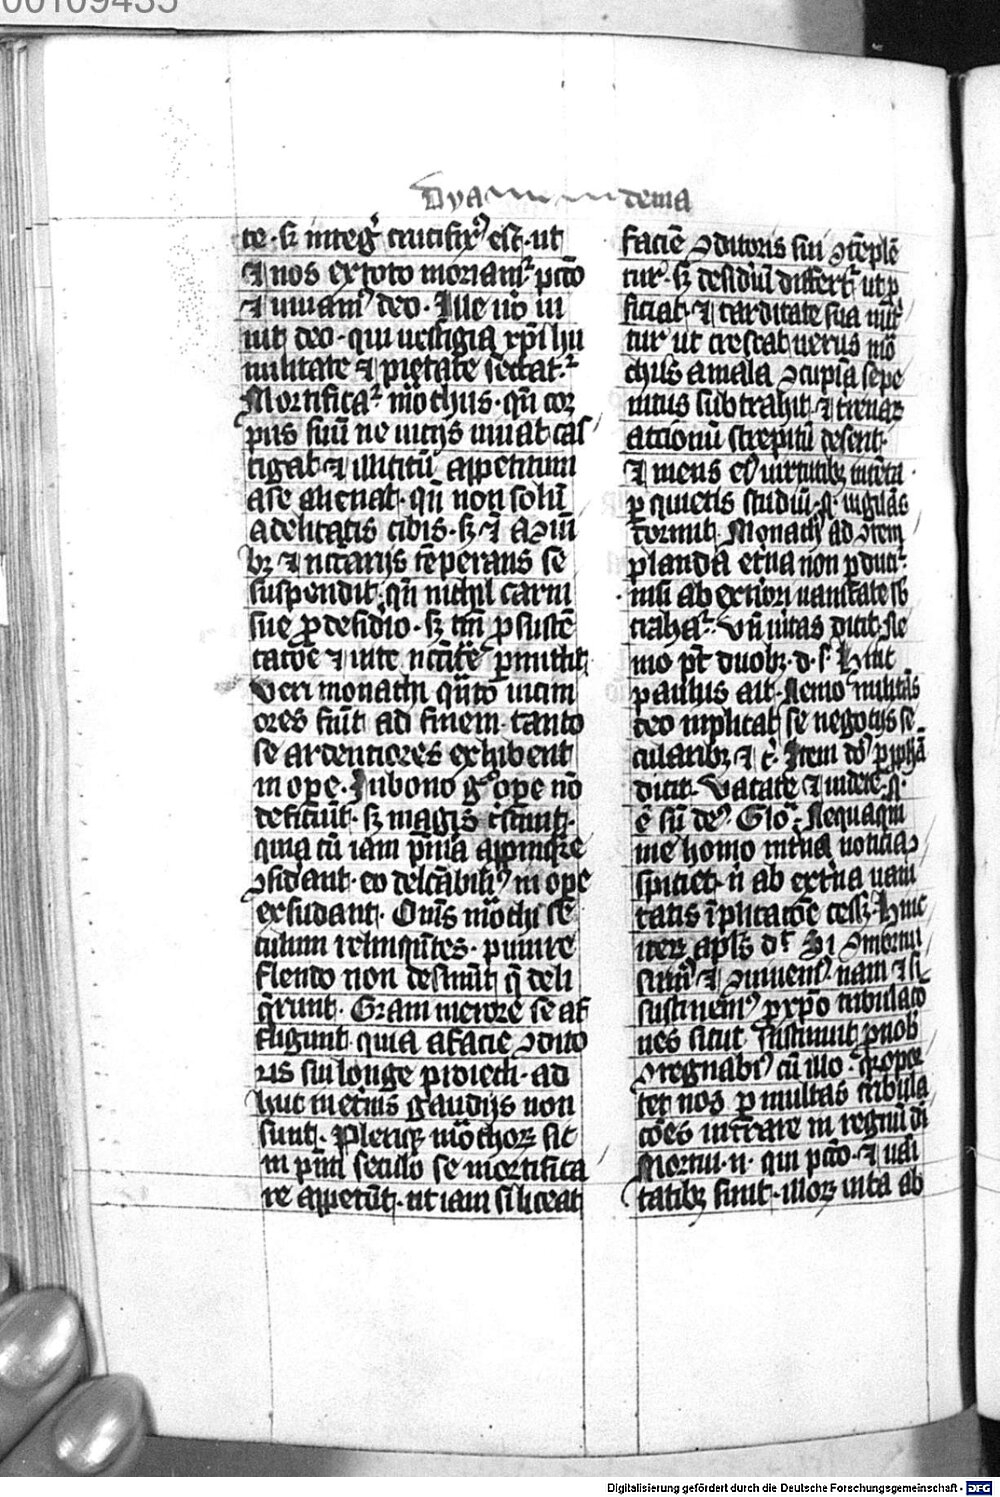 00109435
Dya dema
te · sꝫ integͬ crucifixꝰ est · ut
⁊ nos ex toto moriamᷣ pctō
⁊ uiuamꝰ deo · Ille uō ui
uit deo · qui uestigia xp̄i hu
militate ⁊ pietate sectatᷣ
Mortificatᷣ mōchus · qn̄ cor
pus suū ne uicijs uiuat cas
tigat ⁊ illicitū appetitum
a se alienat · qn̄ non solū
a delicatis cibis · sꝫ ⁊
bꝫ ⁊ nc̄cārijs tēperans se
suspendit · qn̄ nichil carni
sue ꝓ desidio · sꝫ tm̄ ꝓ sustē
tacōe ⁊ uite p̄mittit
Veri monachi qn̄to uicini
ores fiūt ad finem · tanto
se ardenciores exhibent
in oꝑe · In bono gͦ oꝑe nō
deficiūt · sꝫ magis c̄scunt ·
quia cū iam p̄mia app̄inqͣre
ꝯsidāt · eo delc̄abiliꝰ in oꝑe
exsudant · Om̄s mōchi se
culum relinqn̄tes · punire
flendo non desinūt qͥ deli
q̄runt · Gͣui merore se af
fligunt · quia a facie ꝯdito
ris sui longe ꝓiecti · ad
huc in et̄nis gaudijs non
sunt · Pleriqꝫ mōchoꝝ sic
in p̄nti seculo se mortifica
re appetūt · ut iam si liceat
faciē ꝯditoris sui ꝯtēplē
turᷣ · sꝫ desid̓iū differtᷣ ut ꝓ
ficiat · ⁊ tarditate sua nut̓
turᷣ ut crescat uerus mō
chus a mala ꝯcupīa sepe
nitus subtrahit · ⁊ t̓renaꝝ
accionū strepitū deserit ·
⁊ mens eiꝰ uirtutibꝫ
ꝑ quietis studiū · uigilās
dormit · Monachꝰ ad ꝯtem
planda et̓na non ꝑducitᷣ
nisi ab ext̓iori uanitate sb
trahatᷣ · Vn̄ ūitas dicit · Ne
mo pt̄ duobꝫ · d · s · Hinc
paulus ait · Nemo militās
deo inplicat se negocijs se
cularibꝫ ⁊ c̄ · Item dn̄s ꝑ ꝓphͣā
dicit · Vacate ⁊ uidete · q̄
ē sū deꝰ · Glo · Nequaqm̄
me homo int̓na noticia ꝯ
spiciet · n̄ ab ext̓na uani
tatis īplicacōe cessꝫ · Hinc
iteꝝ apl̄s dt̄ · Si
sumꝰ ⁊ ꝯuiuemꝰ · nam ⁊ si
sustinemꝰ ꝓ xp̄o tribulacō
nes sicut sustinuit ꝓ nob̄
ꝯregnabimꝰ cū illo · q̄ opor
tet nos ꝑ multas tribula
cōes intrare in regnū di
Mortui · n · qui pctō · ⁊ uani
tatibꝫ sunt · illoꝝ uita ab
Digitalisierung gefördert durch die Deutsche Forschungsgemeinschaft - DFG